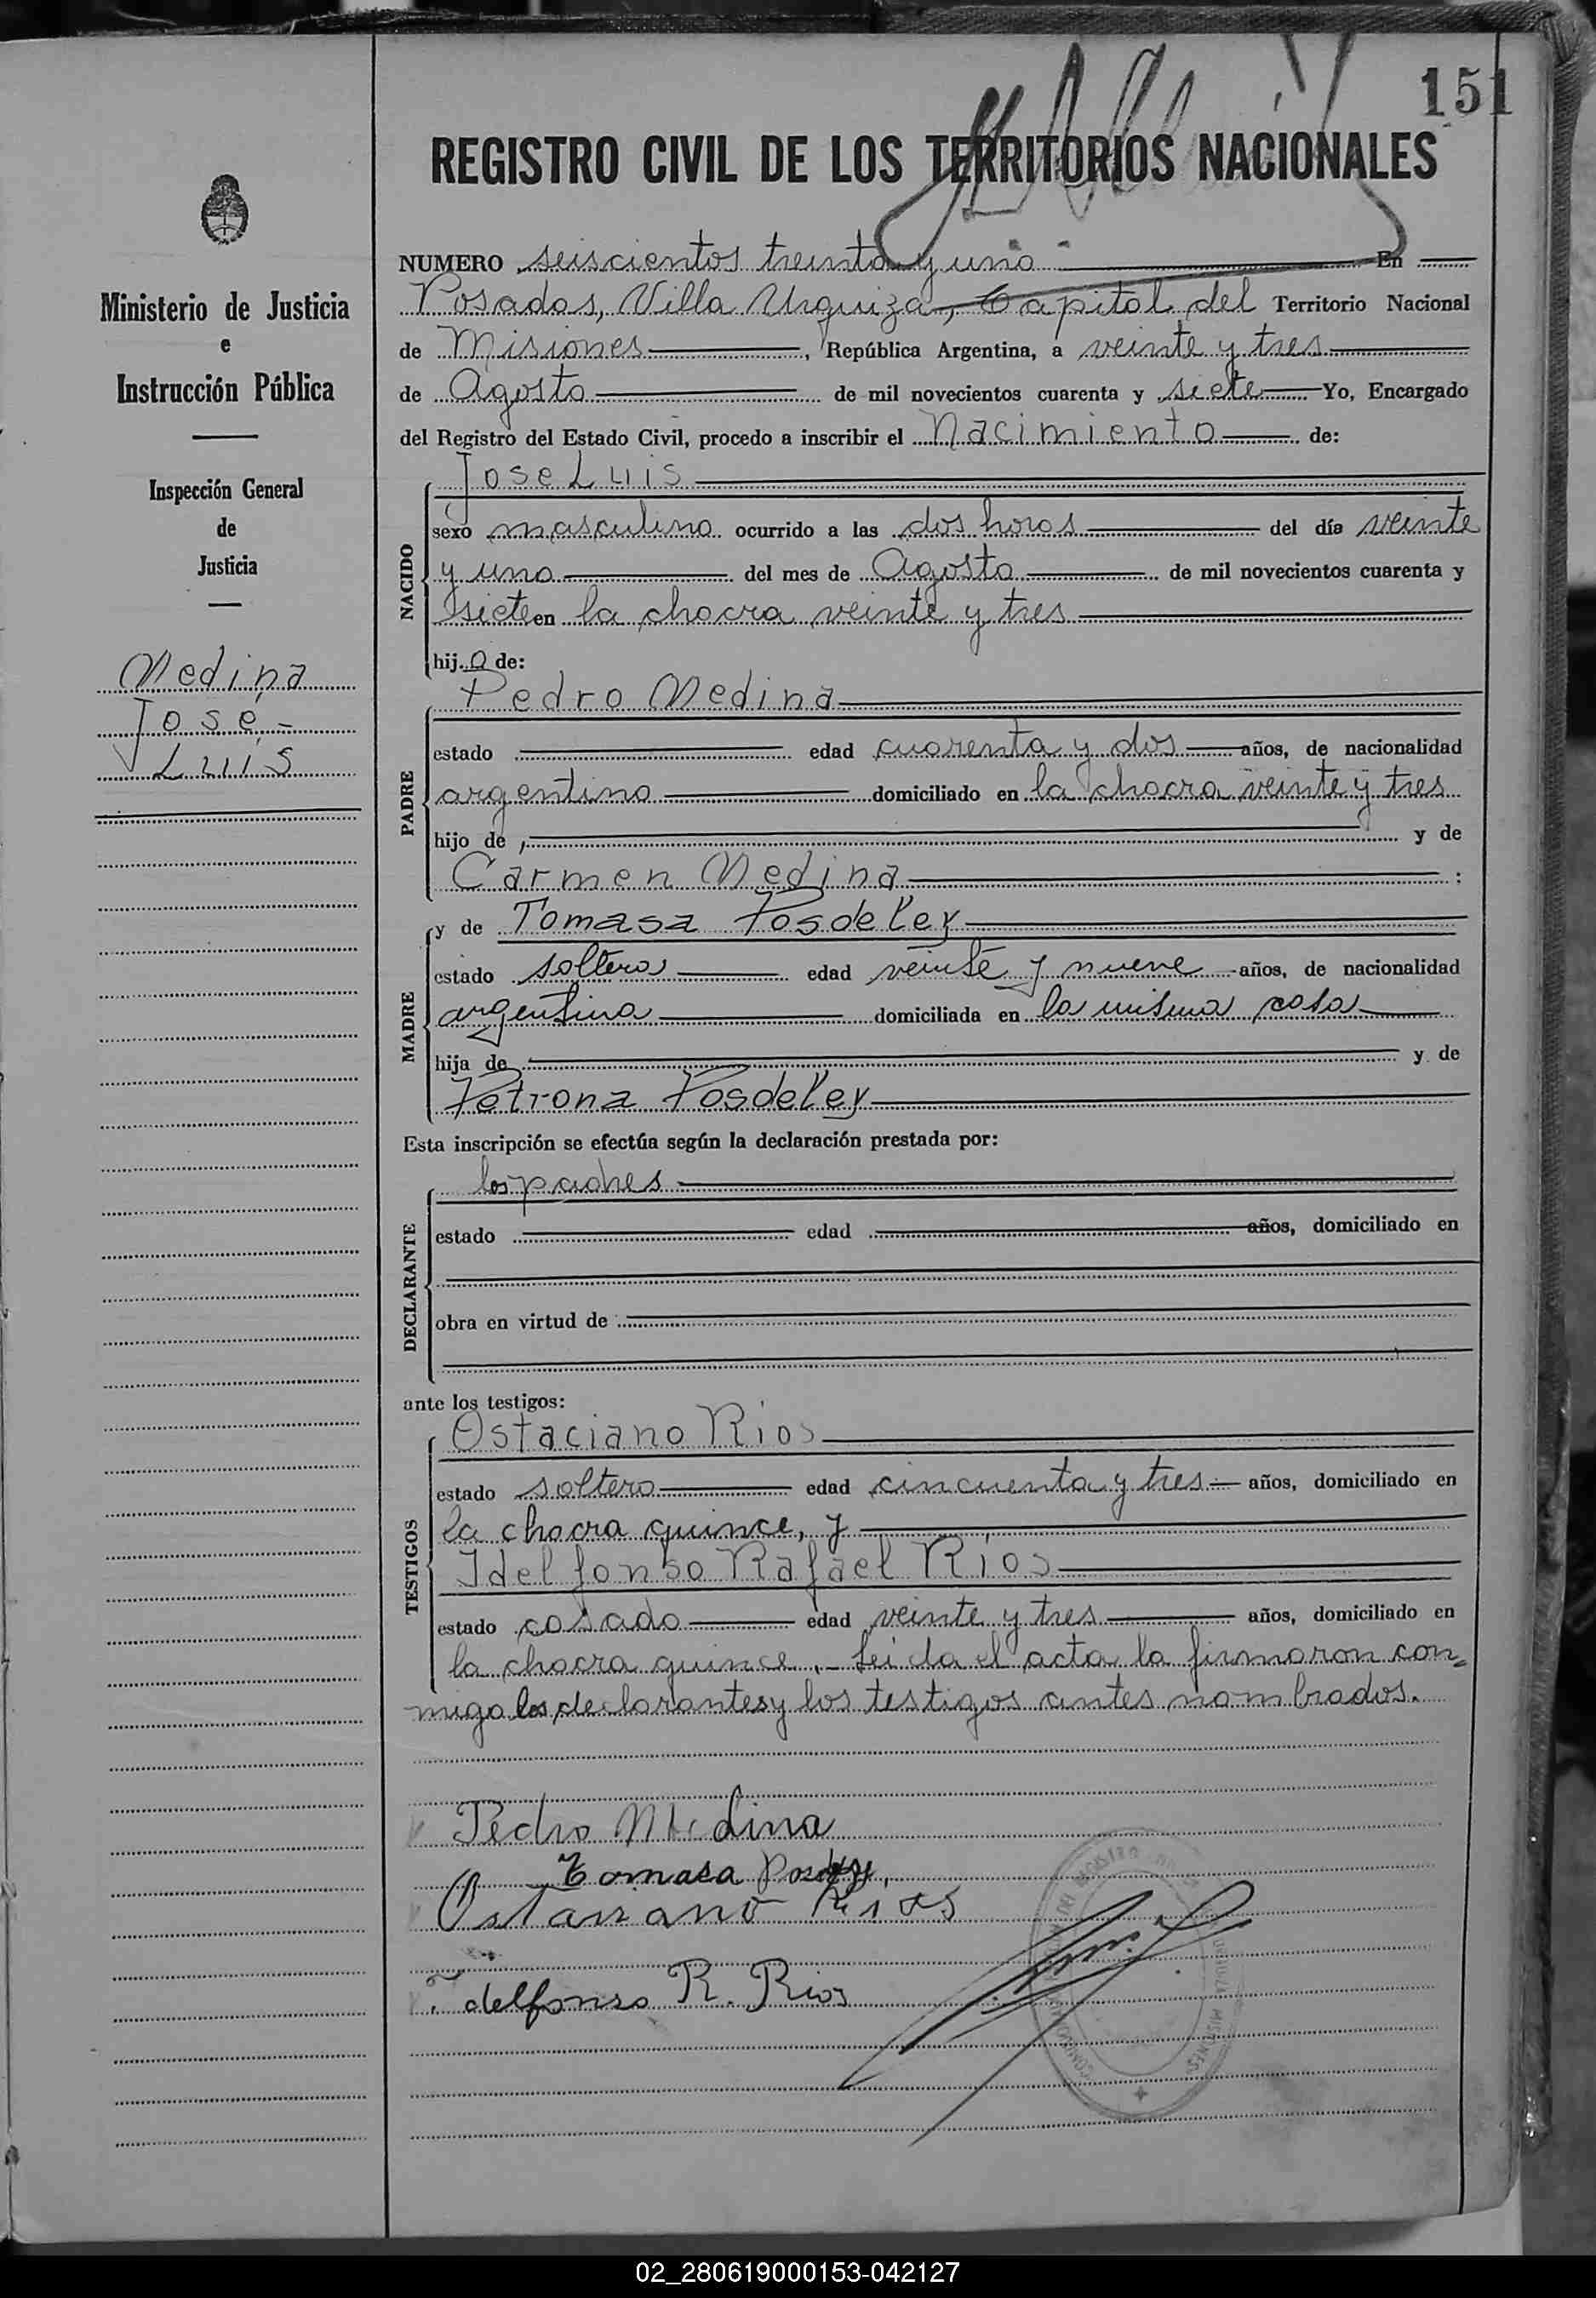 151
REGISTRO CIVIL DE LOS TERRITORIOS NACIONALES
Ministerio de Justicia
e
Instrucción Pública
Inspección General
de
Justicia
Medina
José
Luis
NUMERO seiscientos treinta y uno En
Posadas, Villa Urquiza, Capital del Territorio Nacional
de Misiones, República Argentina, a veinte y tres
de Agosto de mil novecientos cuarenta y siete Yo, Encargado
del Registro del Estado Civil, procedo a inscribir el Nacimiento de:
NACIDO
Jose Luis
sexo masculino ocurrido a las dos horas del día veinte
y uno del mes de Agosto de mil novecientos cuarenta y
siete en la chacra veinte y tres
hijo de:
PADRE
Pedro Medina
estado edad cuarenta y dos años, de nacionalidad
argentino domiciliado en la chacra veinte y tres
hijo de y de
Carmen Medina ;
MADRE
y de Tomasa Posdeley
estado soltera edad veinte y nueve años, de nacionalidad
argentina domiciliada en la misma casa
hija de y de
Petrona Posdeley
Esta inscripción se efectúa según la declaración prestada por:
DECLARANTE
los padres
estado edad años, domiciliado en
obra en virtud de
ante los testigos:
TESTIGOS
Ostaciano Rios
estado soltero edad cincuenta y tres años, domiciliado en
la chacra quince, y
Idelfonso Rafael Rios
estado casado edad veinte y tres años, domiciliado en
la chacra quince. Leida el acta la firmaron con-
migo los declarantes y los testigos antes nombrados.
Pedro Medina
Tomasa
Ostaciano Rios
Idelfonso R. Rios
02_280619000153-042127